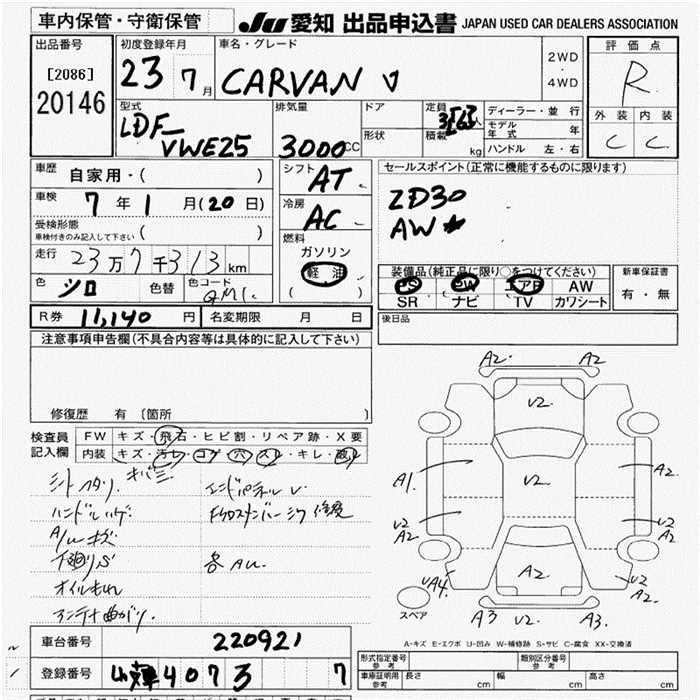 車内保管・守衛保管
JU 愛知 出品申込書 JAPAN USED CAR DEALERS ASSOCIATION
出品番号 初度登録年月 車名・グレード 評価点
[2086] 23 7月 CARVAN 2WD・4WD R
20146
型式 排気量 ドア 定員 人 ディーラー・並行 外装 内装
LDF- 形状 積載 kg モデル年式 年 C C
VWE25 3000CC ハンドル 左・右
車歴 自家用・( ) シフト AT セールスポイント(正常に機能するものに限ります)
車検 7年1月(20日) 冷房 AC ZD30
受検形態 ( ) AW
車検付きのみ記入して下さい
燃料
走行 23万7千313km ガソリン
軽油
( )
色 シロ 色替 色コード QM1
装備品(純正品に限り○をつけてください) 新車保証書
PS PW エアB AW 有・無
SR ナビ TV カワシート
R券 11,140円 名変期限 月 日 後日品
注意事項申告欄(不具合内容等は具体的に記入して下さい)
修復歴 有 [箇所 ]
検査員 FW キズ・飛石・ヒビ割・リペア跡・X要
記入欄 内装 キズ・汚レ・コゲ・穴・スレ・キレ・
シートヘタリ
ハンドルハゲ
A/Wキズ
下廻りS
オイルもれ
アンテナ曲がり
エンドパネルU
各AU
A2 A2
U2
A1 U2 A2
U2 A2 U2 A2
A2
UA4 U2 A2
スペア A3 U2 A3
A-キズ E-エクボ U-凹み W-補修跡 S-サビ C-腐食 XX-交換済
車台番号 220921
登録番号 4073 7
形式指定番号 参考 類別区分番号 参考
車庫証明用 参考 長さ cm 幅 cm 高さ cm